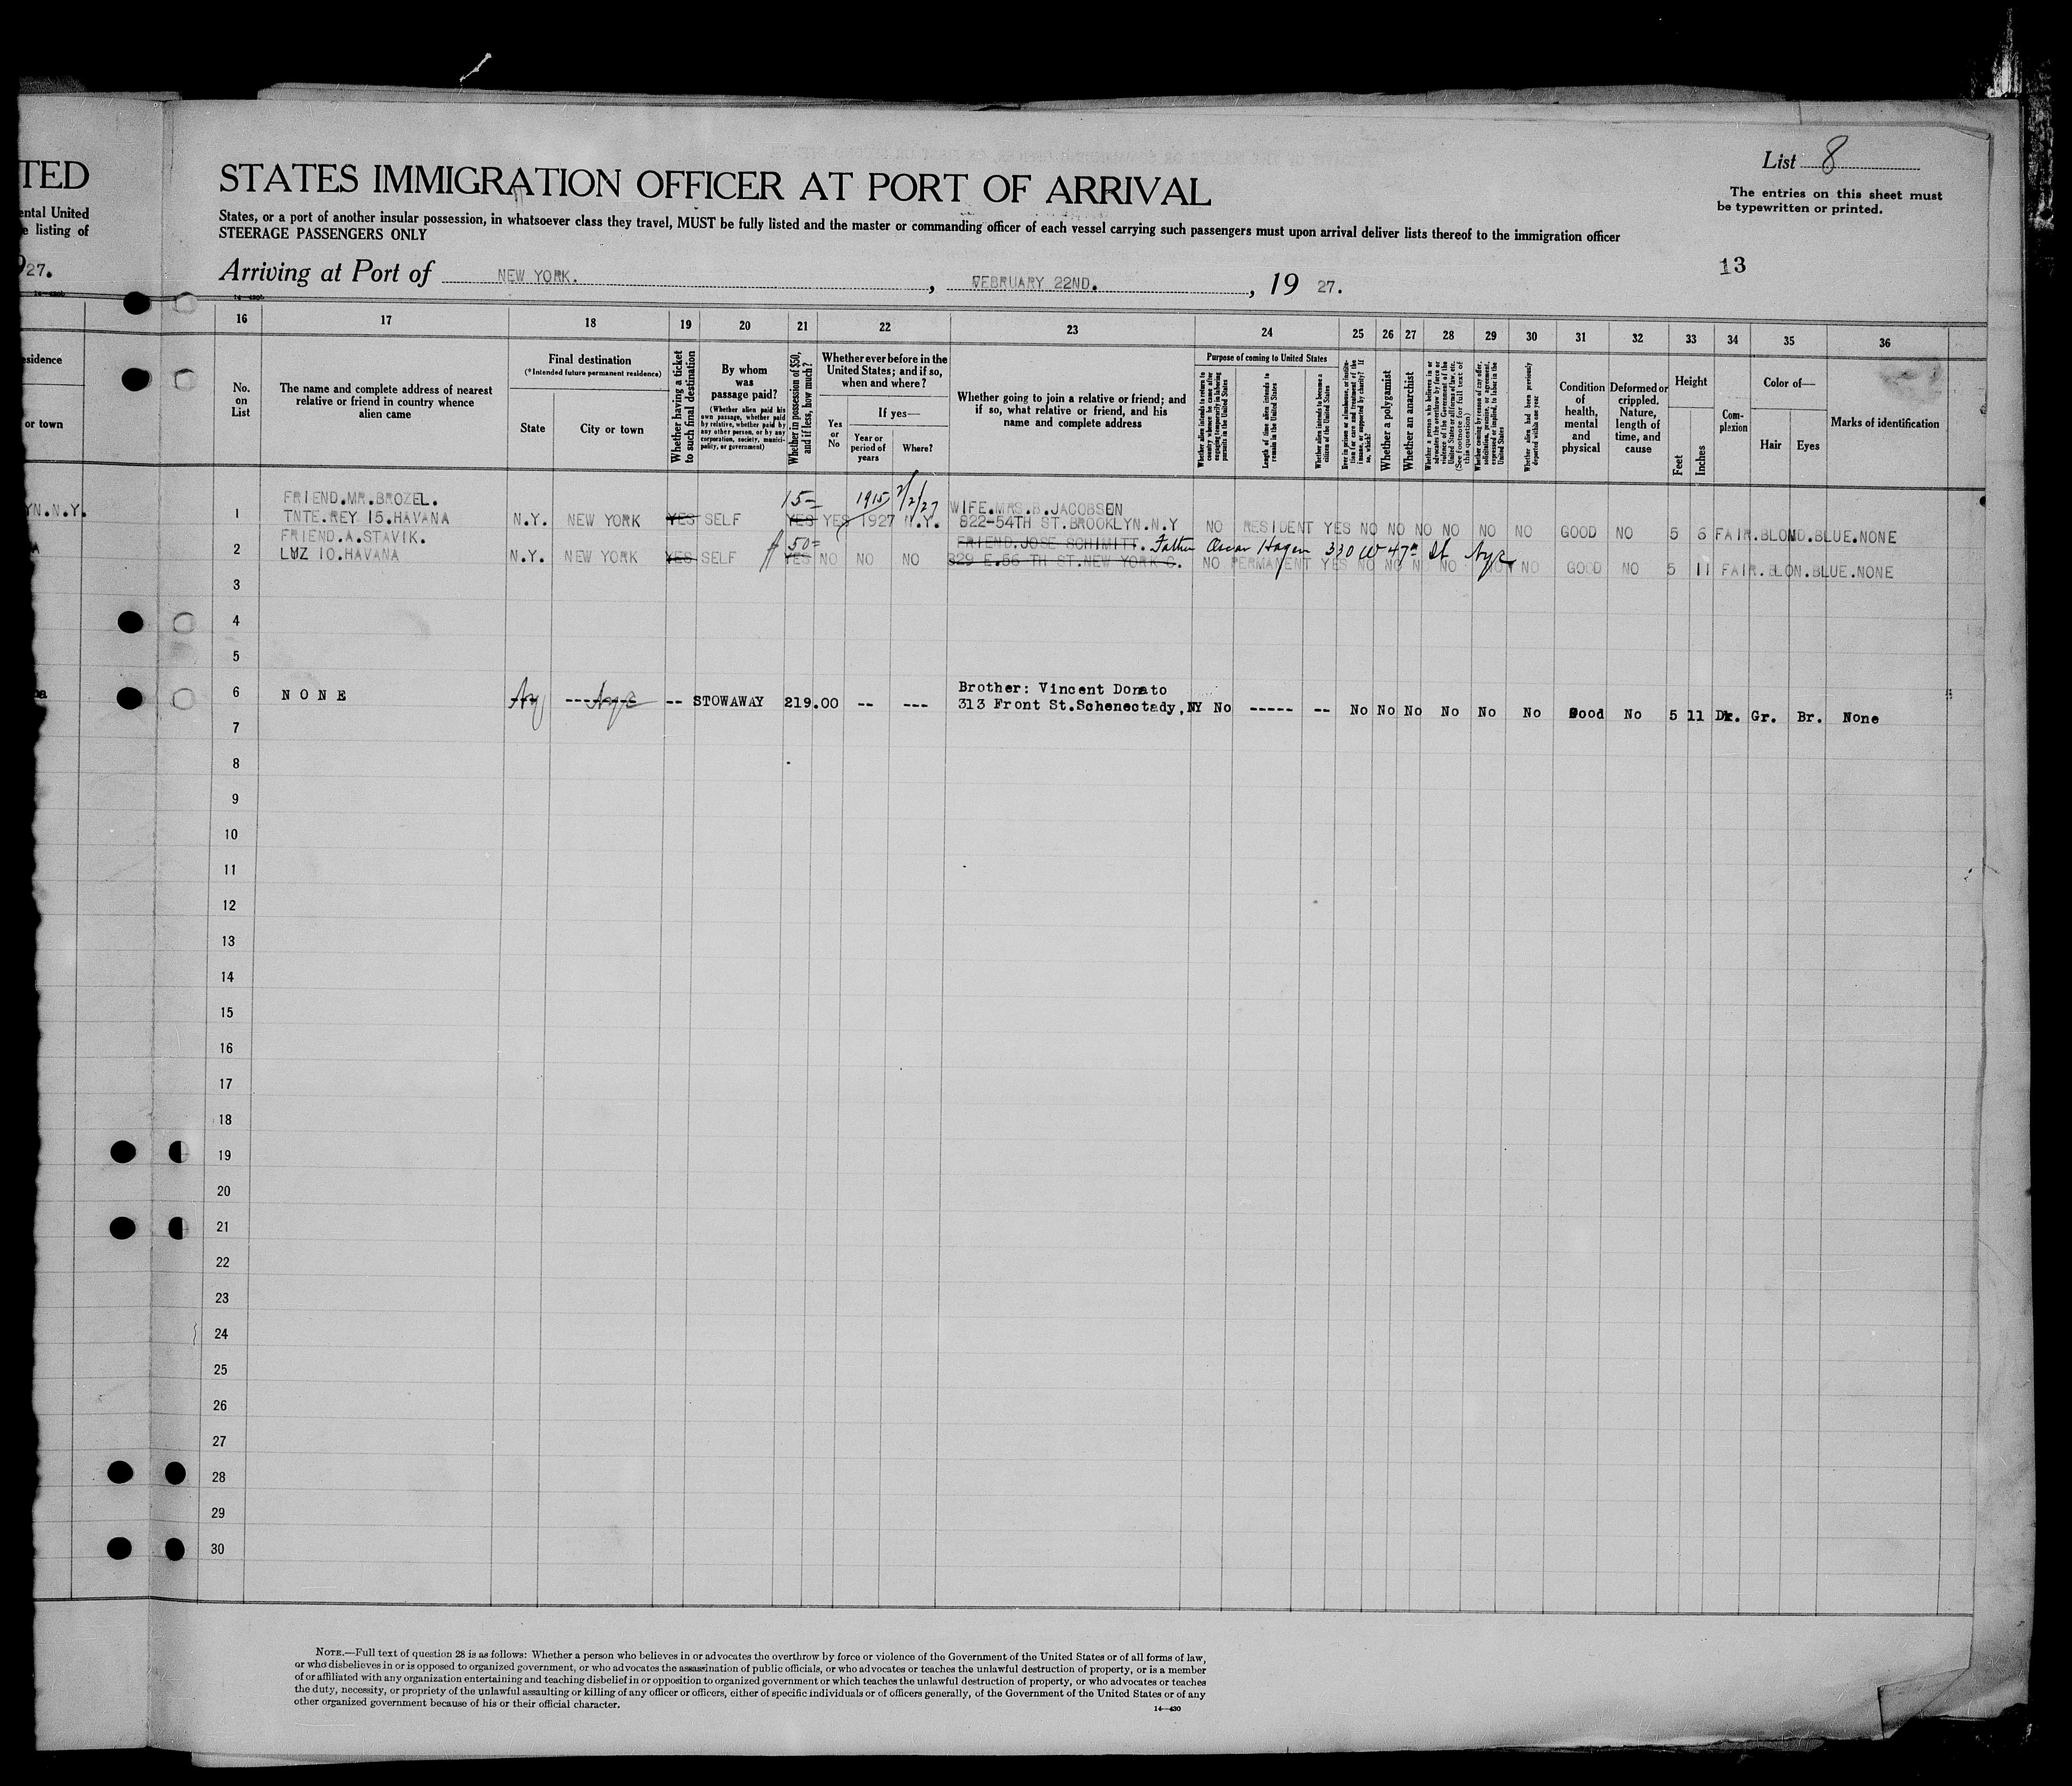 TED
STATES IMMIGRATION OFFICER AT PORT OF ARRIVAL
List 8
ental United
e listing of
The entries on this sheet must
be typewritten or printed.
States, or a port of another insular possession, in whatsoever class they travel, MUST be fully listed and the master or commanding officer of each vessel carrying such passengers must upon arrival deliver lists thereof to the immigration officer
STEERAGE PASSENGERS ONLY
27.
Arriving at Port of NEW YORK. , FEBRUARY 22ND. , 19 27.
13
14—430b
16 17 18 19 20 21 22 23 24 25 26 27 28 29 30 31 32 33 34 35 36
sidence
or town
No.
on
List
The name and complete address of nearest
relative or friend in country whence
alien came
Final destination
(*Intended future permanent residence)
State
City or town
Whether having a ticket
to such final destination
By whom
was
passage paid?
(Whether alien paid his
own passage, whether paid
by relative, whether paid by
any other person, or by any
corporation, society, munici-
pality, or government)
Whether in possession of $50,
and if less, how much?
Whether ever before in the
United States; and if so,
when and where?
Yes
or
No
If yes—
Year or
period of
years
Where?
Whether going to join a relative or friend; and
if so, what relative or friend, and his
name and complete address
Purpose of coming to United States
Whether alien intends to return to
country whence he came after
engaging temporarily in laboring
pursuits in the United States
Length of time alien intends to
remain in the United States
Whether alien intends to become a
citizen of the United States
Ever in prison or almshouse, or institu-
tion for care and treatment of the
insane, or supported by charity? If
so, which?
Whether a polygamist
Whether an anarchist
Whether a person who believes in or
advocates the overthrow by force or
violence of the Government of the
United States or all forms of law, etc.
(See footnote for full text of
this question)
Whether coming by reason of any offer,
solicitation, promise, or agreement,
expressed or implied, to labor in the
United States
Whether alien had been previously
deported within one year
Condition
of
health,
mental
and
physical
Deformed or
crippled.
Nature,
length of
time, and
cause
Height
Feet
Inches
Com-
plexion
Color of—
Hair
Eyes
Marks of identification
FRIEND.MR.BROZEL. 15= 1915 2/2/27 WIFE.MRS.B.JACOBSEN
YN.N.Y. 1 TNTE.REY 15.HAVANA N.Y. NEW YORK YES SELF YES YES 1927 N.Y. 822-54TH ST.BROOKLYN.N.Y NO RESIDENT YES NO NO NO NO NO NO GOOD NO 5 6 FAIR.BLOND.BLUE.NONE
FRIEND.A.STAVIK. $ 50= FRIEND.JOSE SCHIMITT. Father Oscar Hagen 330 W 47th St NYC
2 LUZ 10.HAVANA N.Y. NEW YORK YES SELF YES NO NO NO 329 E.56 TH ST.NEW YORK C. NO PERMANENT YES NO NO NO NO NO NO GOOD NO 5 11 FAIR.BLON.BLUE.NONE
3
4
5
Brother: Vincent Donato
6 NONE NY ---NYC -- STOWAWAY 219.00 -- --- 313 Front St.Schenectady,NY No ----- -- No No No No No No Good No 5 11 Dk. Gr. Br. None
7
8
9
10
11
12
13
14
15
16
17
18
19
20
21
22
23
24
25
26
27
28
29
30
NOTE.—Full text of question 28 is as follows: Whether a person who believes in or advocates the overthrow by force or violence of the Government of the United States or of all forms of law,
or who disbelieves in or is opposed to organized government, or who advocates the assassination of public officials, or who advocates or teaches the unlawful destruction of property, or is a member
of or affiliated with any organization entertaining and teaching disbelief in or opposition to organized government or which teaches the unlawful destruction of property, or who advocates or teaches
the duty, necessity, or propriety of the unlawful assaulting or killing of any officer or officers, either of specific individuals or of officers generally, of the Government of the United States or of any
other organized government because of his or their official character.
14—430